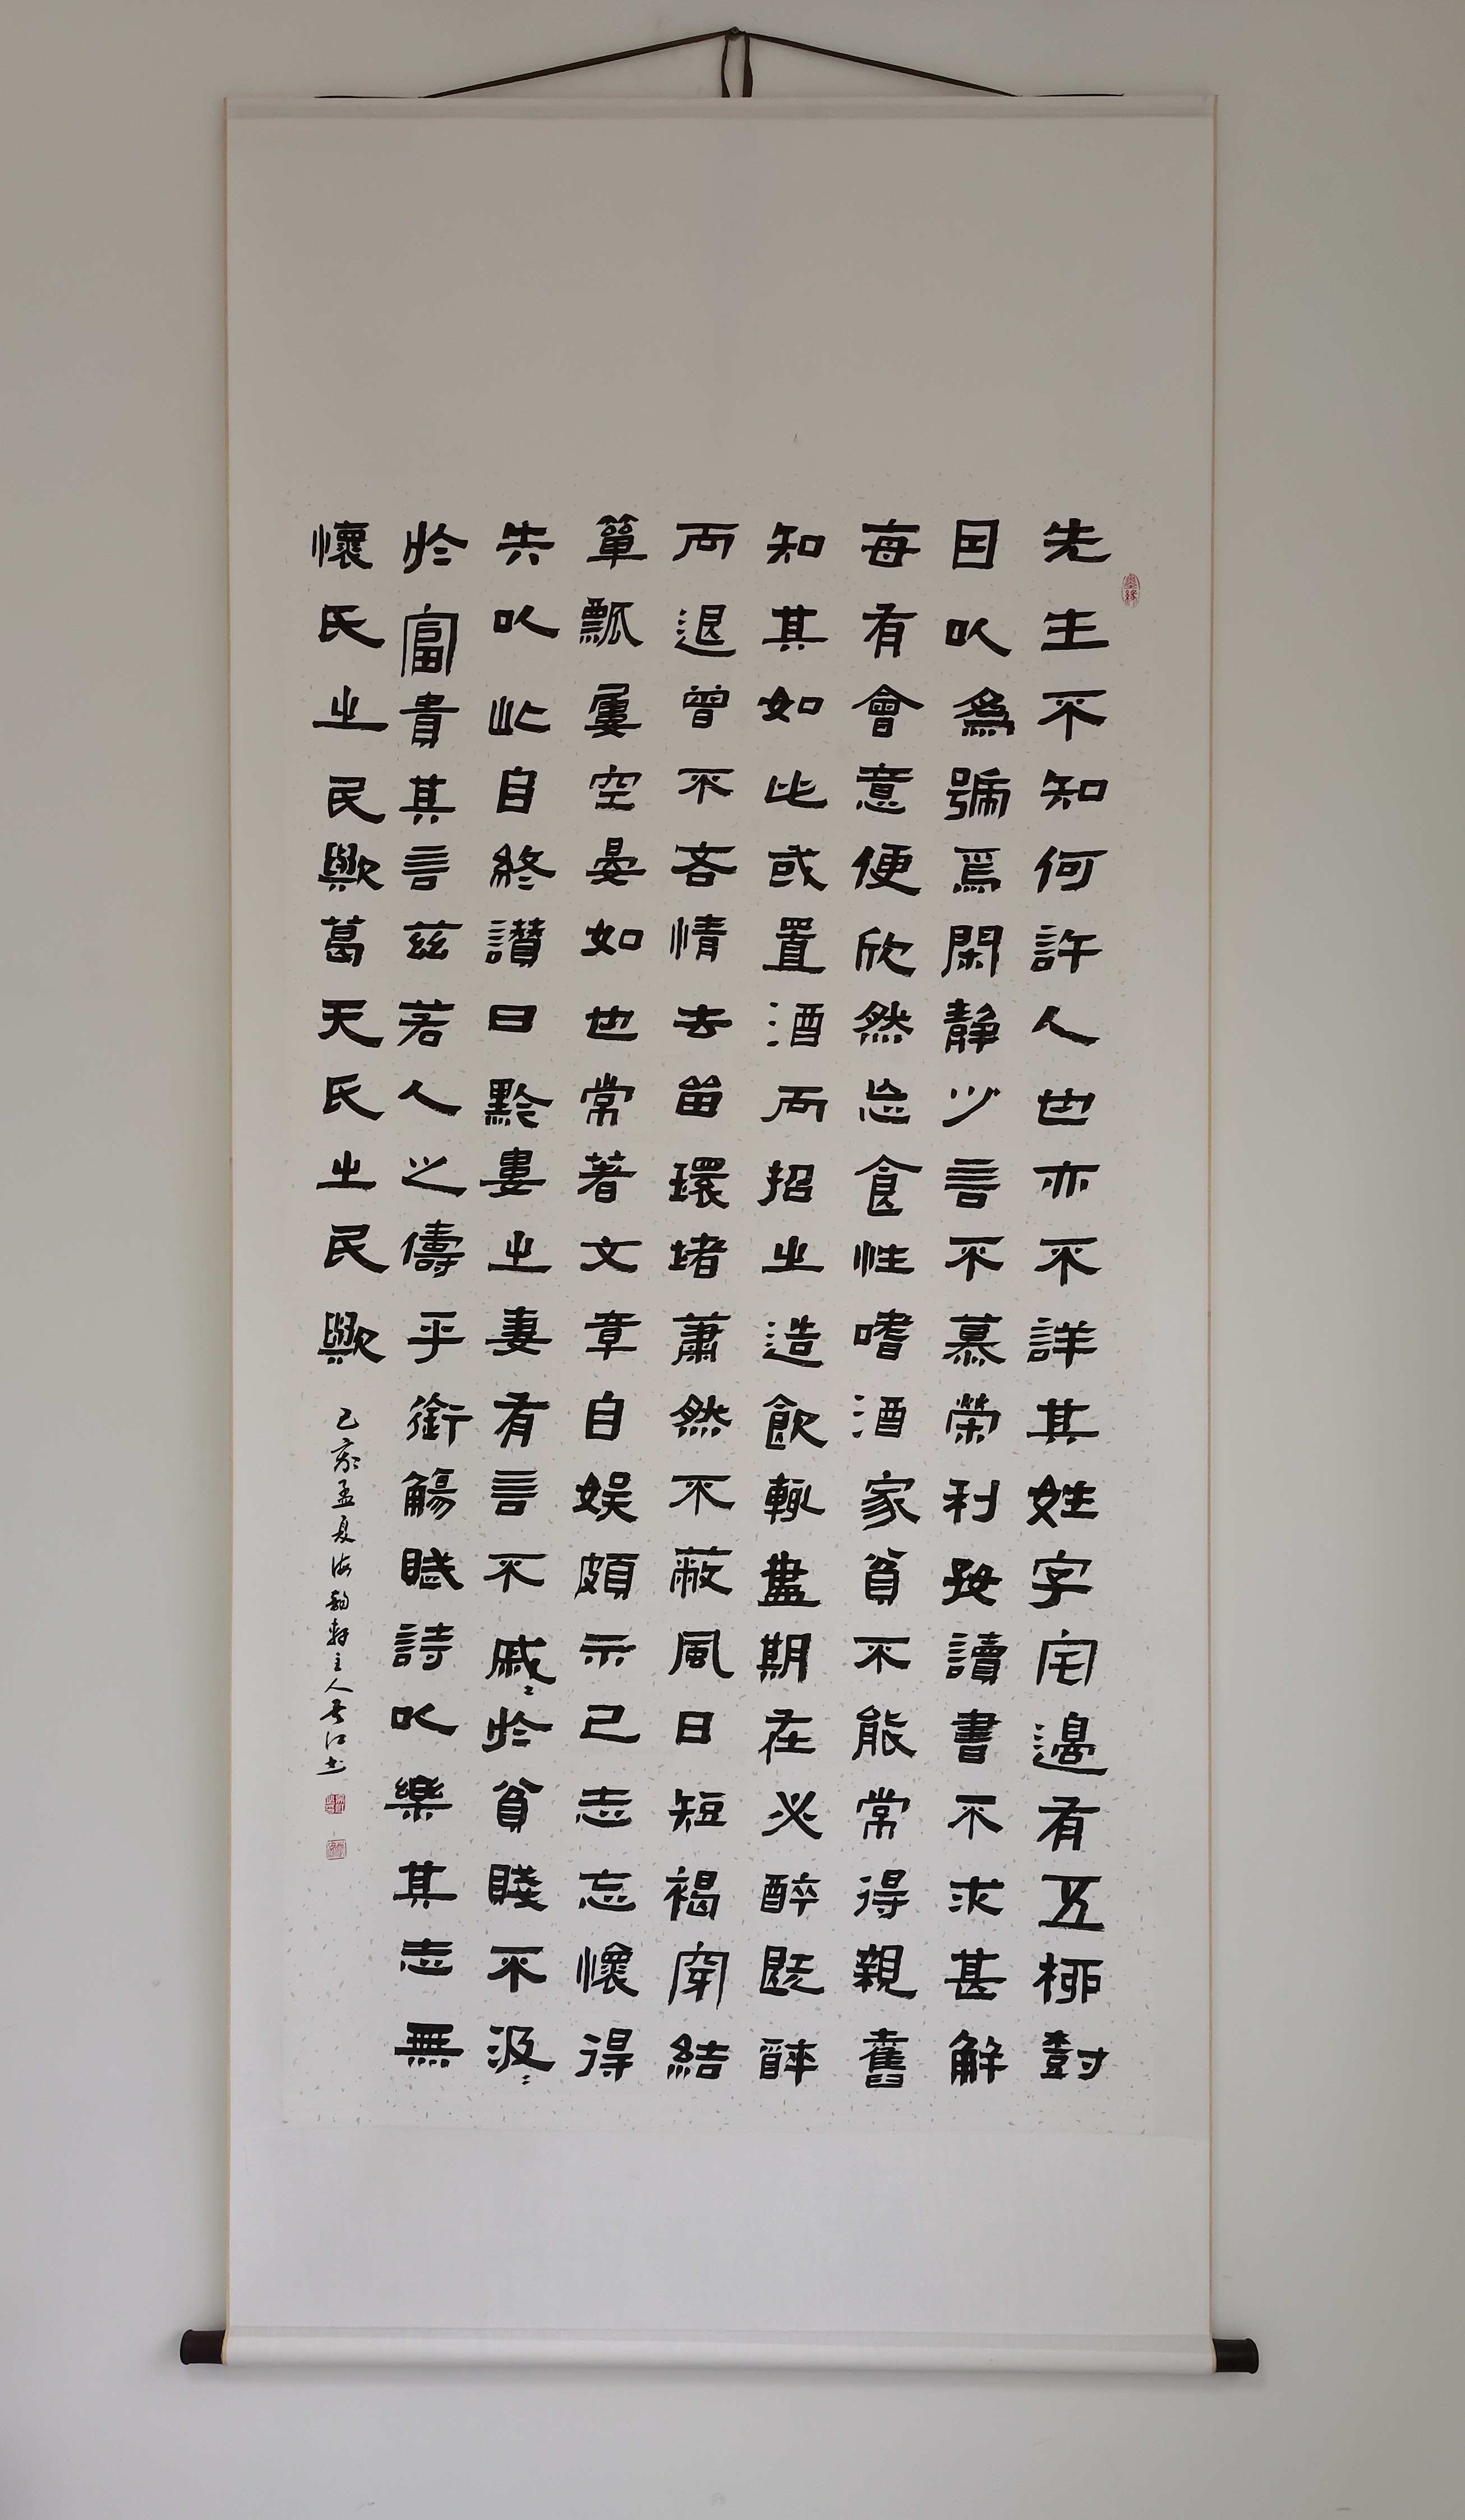 先生不知何許人也亦不詳其姓字宅邊有五柳樹
因以為號焉閑静少言不慕榮利好讀書不求甚解
每有會意便欣然忘食性嗜酒家貧不能常得親舊
知其如此或置酒而招之造飲輒盡期在必醉既醉
而退曾不吝情去留環堵蕭然不蔽風日短褐穿結
簞瓢屢空晏如也常著文章自娛頗示己志忘懷得
失以此自終讚曰黔婁之妻有言不戚〻於貧賤不汲〻
於富貴其言茲若人之儔乎銜觴賦詩以樂其志無
懷氏之民歟葛天氏之民歟
己亥孟夏海韵軒主人長江書